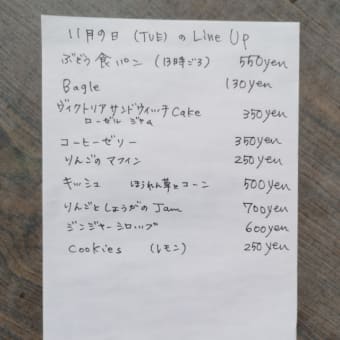 11月9日 (TUE) の Line Up
ぶどう食パン (13時ごろ) 550yen
Bagle 130yen
ヴィクトリアサンドウィッチCake 350yen
ローゼル ジャム
コーヒーゼリー 350yen
りんごのマフィン 250yen
キッシュ ほうれん草とコーン 500yen
りんごとしょうがのJam 700yen
ジンジャーシロップ 600yen
Cookies (レモン) 250yen